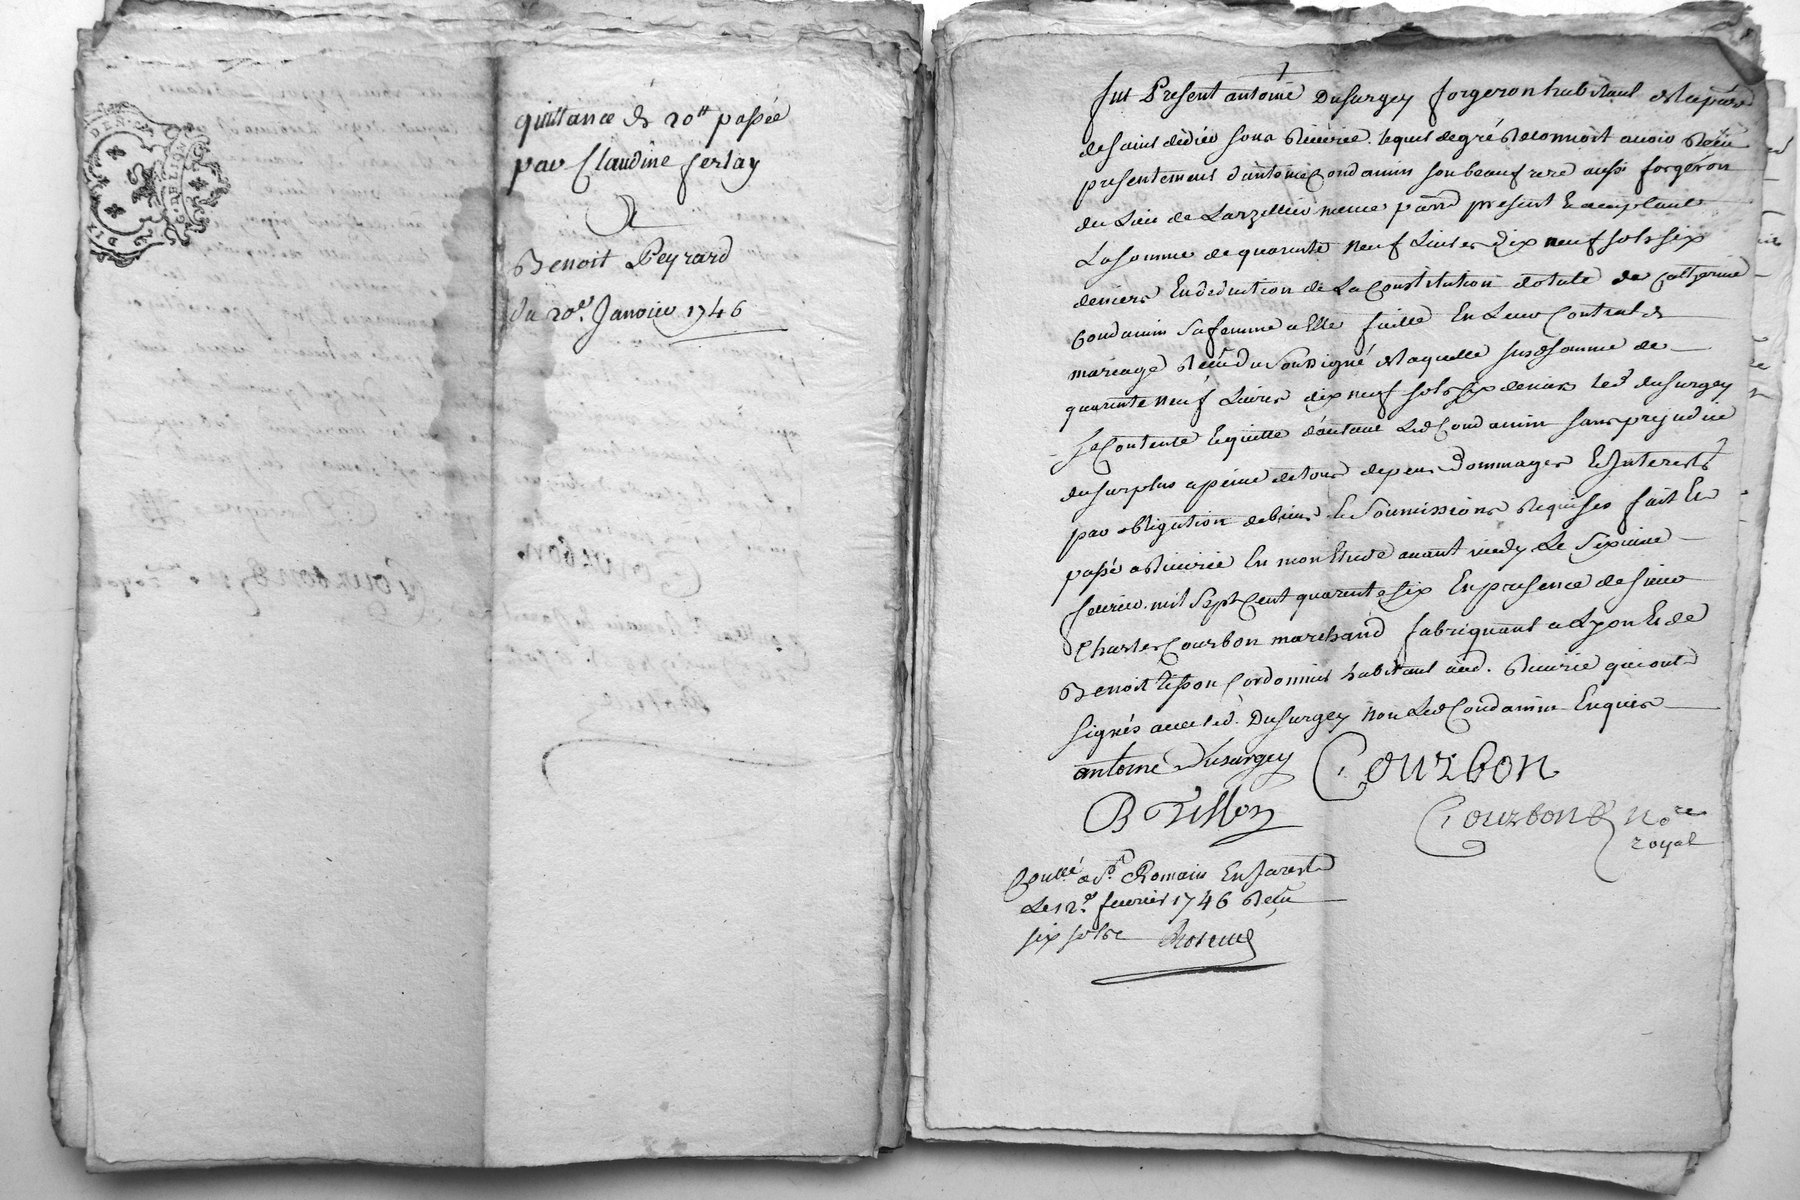 quittance de 20ᵗᵗ passée
par Claudine ferlay
A
Benoit Peyrard
du 20ᵉ. Janvier 1746
fut Present antoine Dusurgey forgeron habitant
de saint didier sous Riverie. lequel de gré Reconnoit avoir Reçu
presentement d'antoine Condamin son beaufrere aussi forgeron
du Lieu de Larzellier meme parr̃ present Eacceptant
La somme de quarente neuf Livres dix neuf sols six
deniers En deduction de La Constitution dotale de Catherine
Condamin sa femme a Elle faitte En Leur Contrat de
mariage Reçu du soussigné de laquelle susdᵉ somme de
quarente neuf Livres dix neuf sols six deniers led dusurgey
se Contente Equitte d'autant Led Condamin sans prejudice
du surplus a peine de tous depens dommages Et Interests
par obligation de biens Et soumissions Requises fait Et
passé a Riverie En mon Etude avant midy Le sixieme
fevrier mil sept Cent quarente six En presence de sieur
Charles Courbon marchand fabriquant a Lyon Et de
Benoit tisson Cordonnier habitant aud. Riverie qui ont
signés avec led. Dusurgey non Led Condamin Enquis
antoine Dusurgey Courbon
B Tisson
Courbon Noʳᵉ
royal
Conllé a Sᵗ Romain En Jarest
Le 12ᵉ fevrier 1746 Reçu
six sols